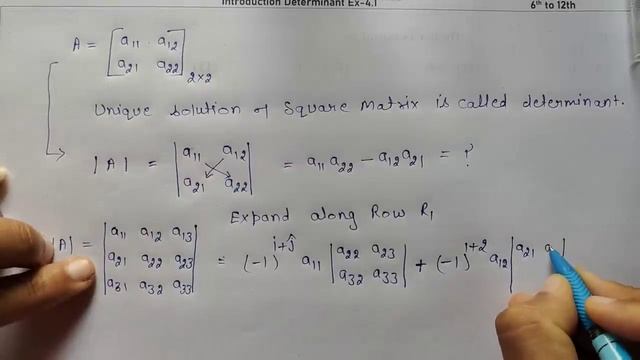 Introduction Determinant Ex-4.1
6th to 12th
A = [a11 a12
a21 a22]2×2
Unique solution of Square Matrix is called determinant.
|A| = |a11 a12
a21 a22| = a11 a22 − a12 a21 = ?
Expand along Row R1
|A| = |a11 a12 a13
a21 a22 a23
a31 a32 a33| = (-1)^i+j a11 |a22 a23
a32 a33| + (-1)^1+2 a12 |a21 a